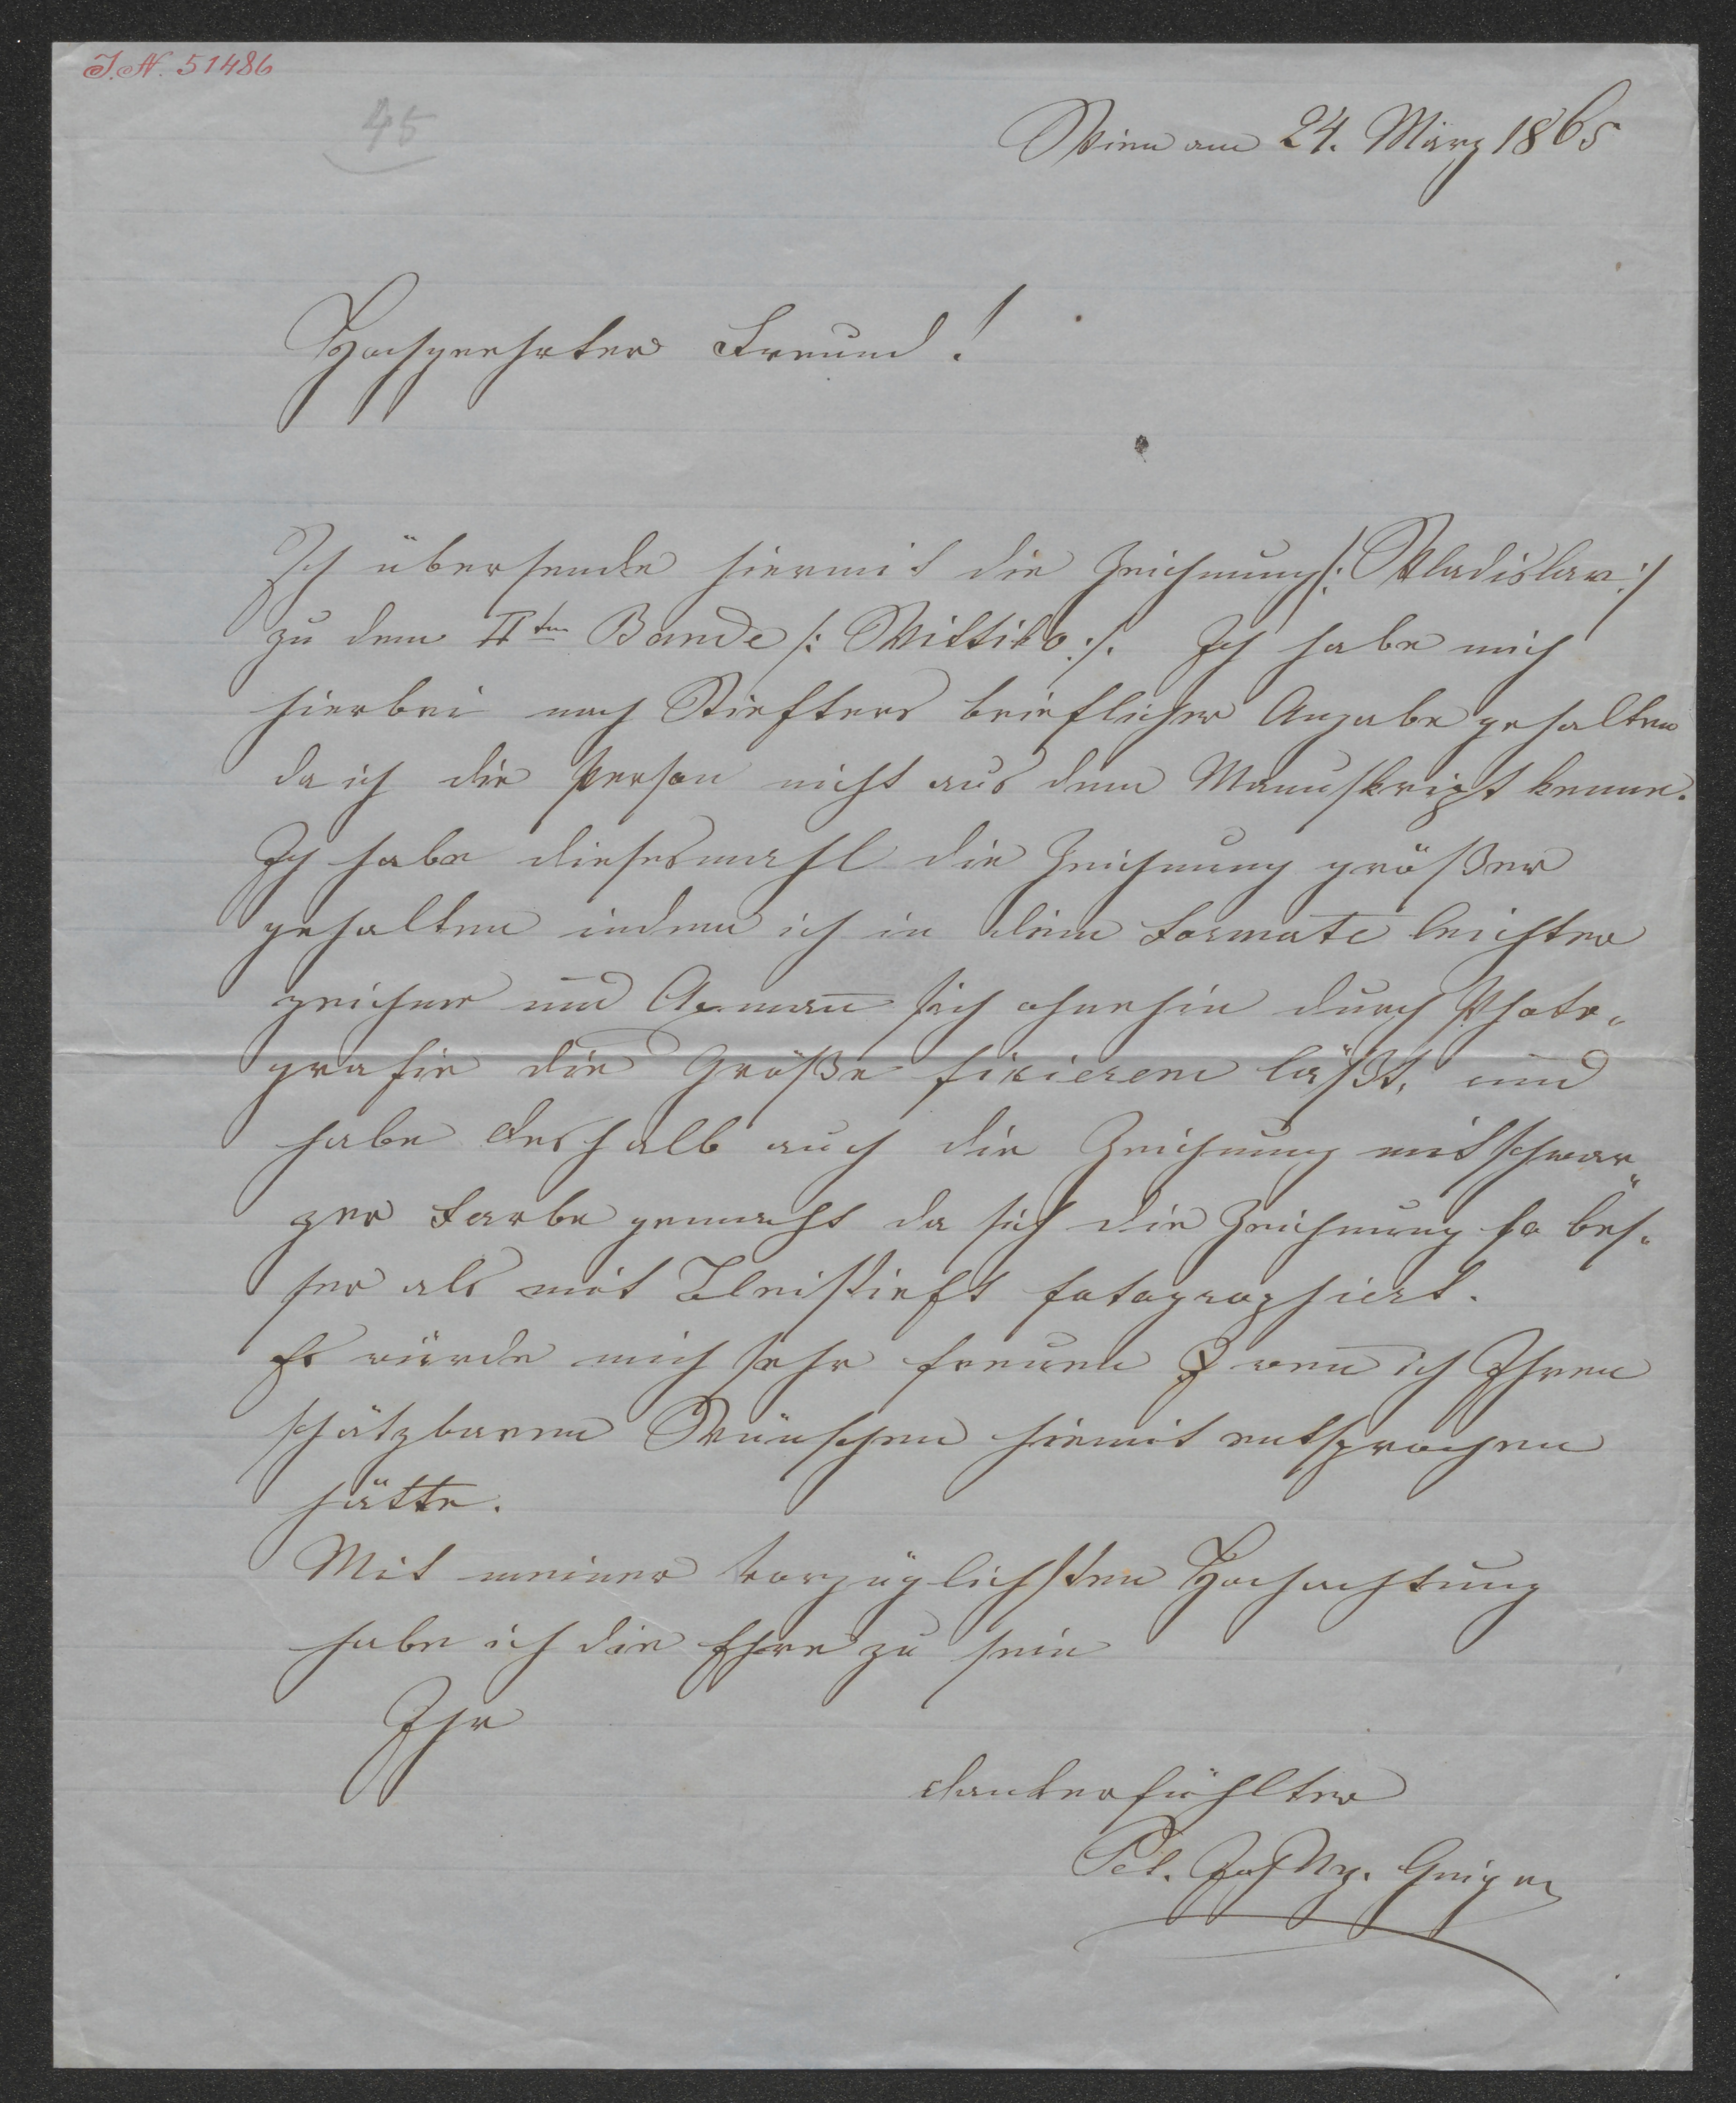 J. N. 51486
45
Wien am 24. März 1865
Hochgeehrter Freund!
Ich übersende hiermit die Zeichnung /: Wladislav :/
zu dem II ten Bande /: Wittiko :/. Ich habe mich
hierbei nach Stiefters brieflicher Angabe gehalten
da ich die Person nicht aus dem Manuskript kenne.
Ich habe diesesmahl die Zeichnung größer
gehalten indem ich in dem Formate leichter
zeichne und Axmañ sich ohnehin durch Photo„
grafie die Größe fixieren läßt, und
habe deshalb auch die Zeichnung mit schwar„
zer Farbe gemacht da sich die Zeichnung so bes„
ser als mit Bleistieft fotographiert.
Es würde mich sehr freuen weñ ich Ihren
schätzbaren Wünschen hiemit entsprochen
hätte.
Mit meiner vorzüglichsten Hochachtung
habe ich die Ehre zu sein
Ihr
dankerfühlter
Pet. Joh Np. Geiger